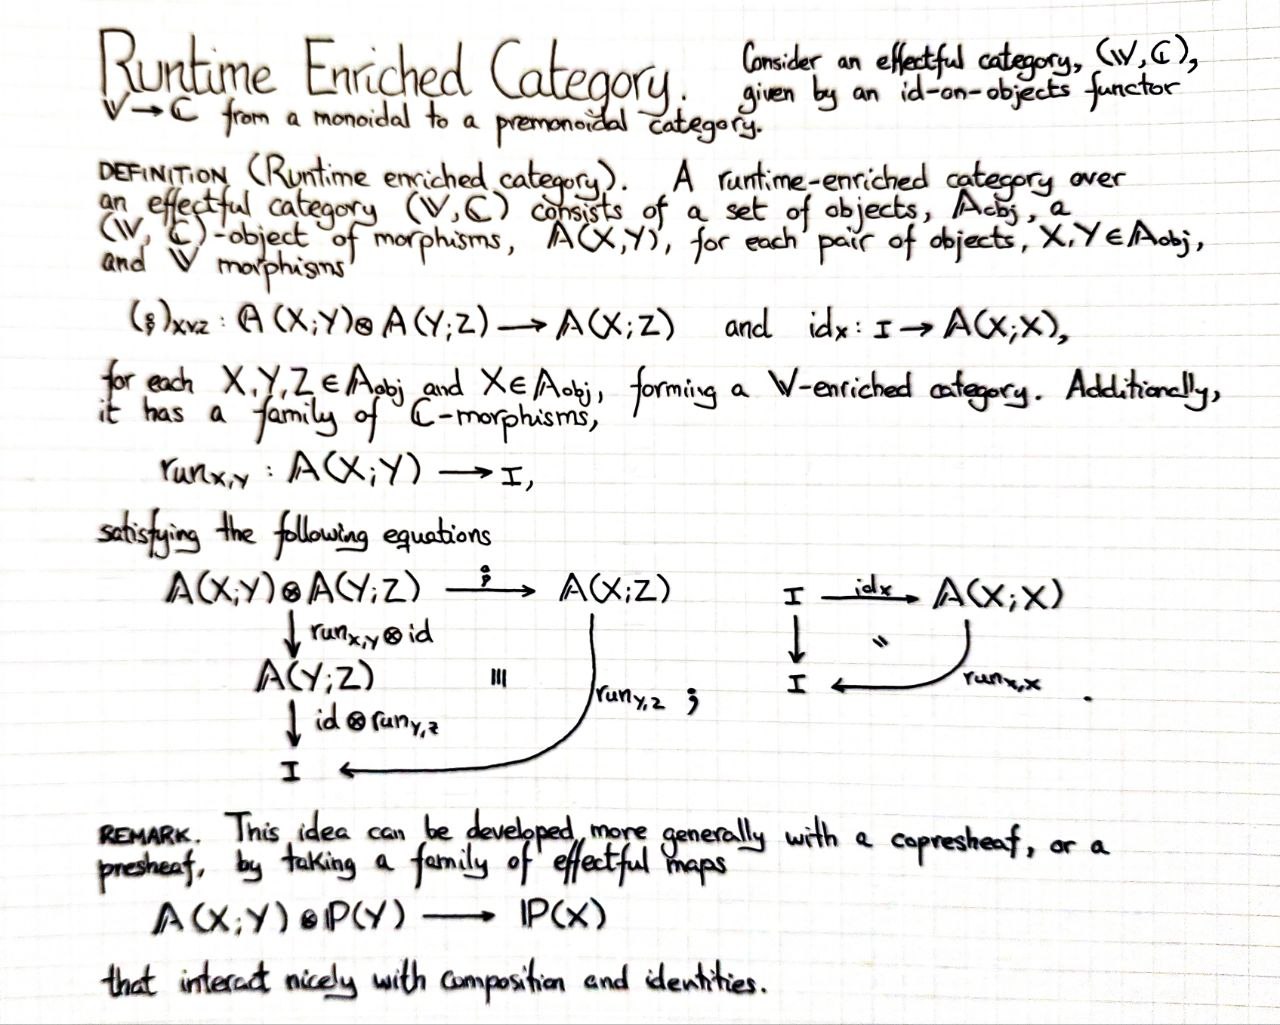 Runtime Enriched Category. Consider an effectful category, (𝕍,ℂ),
given by an id-on-objects functor
𝕍→ℂ from a monoidal to a premonoidal category.
DEFINITION (Runtime enriched category). A runtime-enriched category over
an effectful category (𝕍,ℂ) consists of a set of objects, 𝔸obj, a
(𝕍,ℂ)-object of morphisms, 𝔸(X,Y), for each pair of objects, X,Y∈𝔸obj,
and 𝕍 morphisms
(⨾)XYZ : 𝔸(X;Y)⊗𝔸(Y;Z) → 𝔸(X;Z) and idx: I → 𝔸(X;X),
for each X,Y,Z∈𝔸obj and X∈𝔸obj, forming a 𝕍-enriched category. Additionally,
it has a family of ℂ-morphisms,
runX,Y : 𝔸(X;Y) → I,
satisfying the following equations
𝔸(X;Y)⊗𝔸(Y;Z) ⨾→ 𝔸(X;Z) I idx→ 𝔸(X;X)
↓ runX,Y⊗id ↓ =
𝔸(Y;Z) ≡ runY,Z ; I ← runX,X .
↓ id⊗runY,Z
I ←
REMARK. This idea can be developed more generally with a copresheaf, or a
presheaf, by taking a family of effectful maps
𝔸(X;Y)⊗ℙ(Y) → ℙ(X)
that interact nicely with composition and identities.